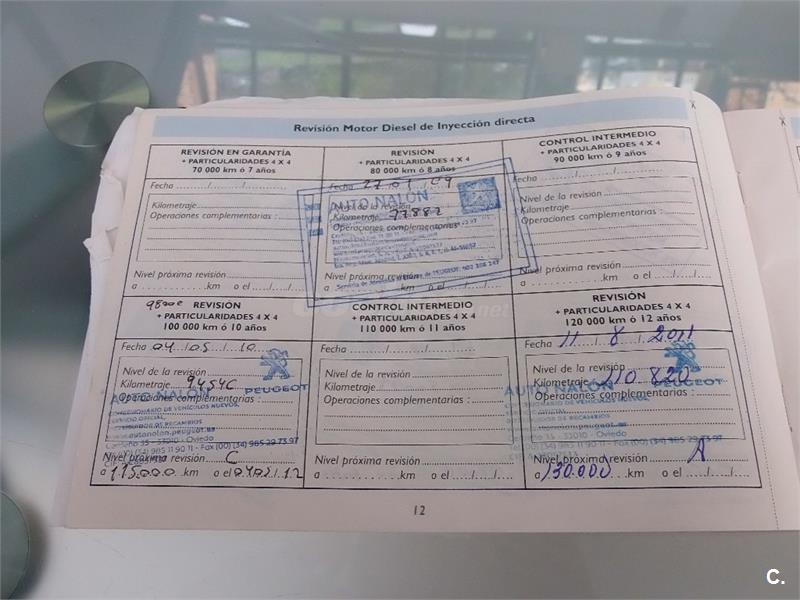 Revisión Motor Diesel de Inyección directa
REVISIÓN EN GARANTÍA
+ PARTICULARIDADES 4 X 4
70 000 km ó 7 años
Fecha ....../....../......
Kilometraje
Operaciones complementarias :
Nivel próxima revisión
a ............ km o el ..../..../....
REVISIÓN
+ PARTICULARIDADES 4 X 4
80 000 km ó 8 años
Fecha 27/01/09
AUTO NALON
Nivel de la revisión
Kilometraje 77882
Operaciones complementarias
Nivel próxima revisión
a ............ km o el ..../..../....
CONTROL INTERMEDIO
+ PARTICULARIDADES 4 X 4
90 000 km ó 9 años
Fecha ....../....../......
Nivel de la revisión
Kilometraje
Operaciones complementarias :
Nivel próxima revisión
a ............ km o el ..../..../....
REVISIÓN
+ PARTICULARIDADES 4 X 4
100 000 km ó 10 años
Fecha 04/05/10
Nivel de la revisión
Kilometraje
PEUGEOT
AUTO NALON
Operaciones complementarias :
CONCESIONARIO DE VEHÍCULOS NUEVOS,
SERVICIO OFICIAL,
www.autonalon.peugeot.es
35 - 33010 - Oviedo
(34) 985 11 90 11 - Fax (00) (34) 985 29 73 97
Nivel próxima revisión C
a 115000 km o el 04/02/12
CONTROL INTERMEDIO
+ PARTICULARIDADES 4 X 4
110 000 km ó 11 años
Fecha ....../....../......
Nivel de la revisión
Kilometraje
Operaciones complementarias :
Nivel próxima revisión
a ............ km o el ..../..../....
REVISIÓN
+ PARTICULARIDADES 4 X 4
120 000 km ó 12 años
Fecha 11/8/2011
Nivel de la revisión
Kilometraje 110820
AUTO NALON PEUGEOT
Operaciones complementarias :
35 - 33010 - Oviedo
Nivel próxima revisión A
a 130.000 km o el ..../..../....
12
C.